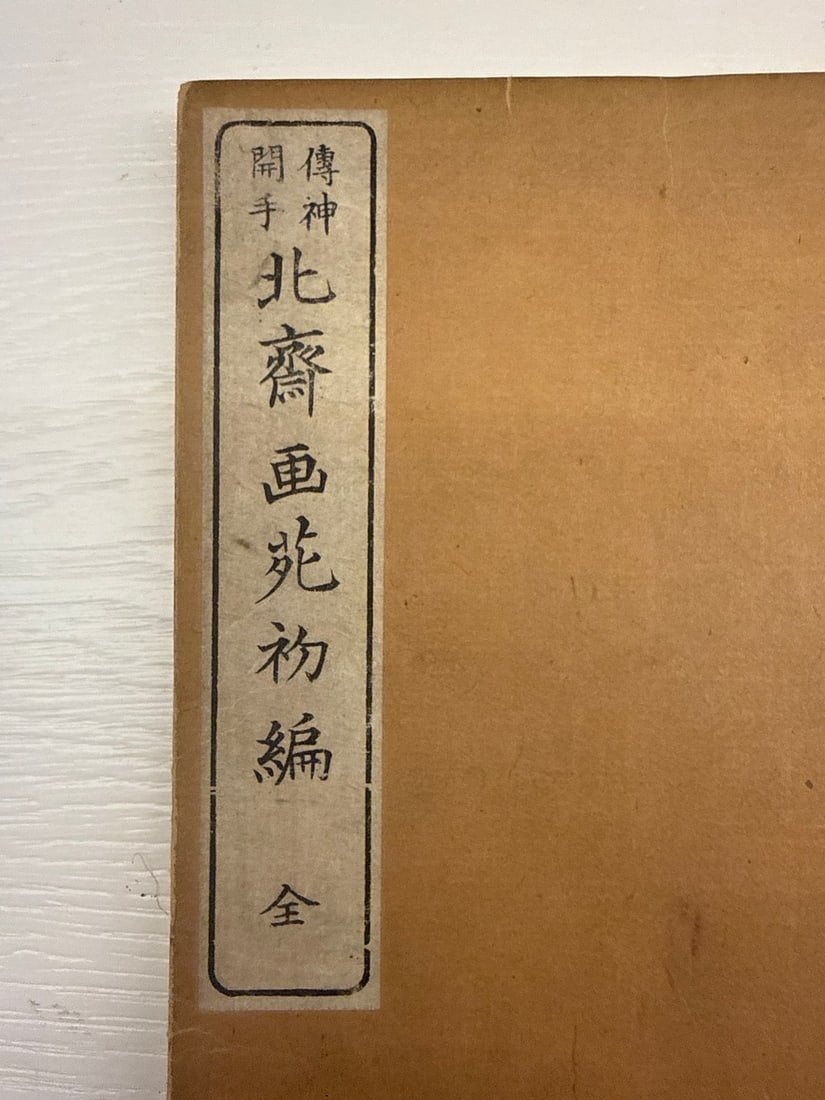 傳神
開手
北齋画苑初編
全